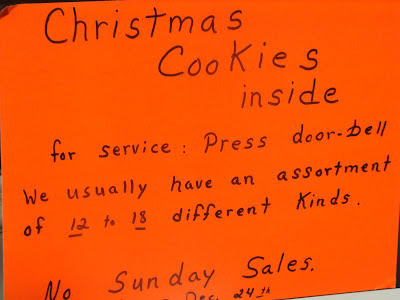 Christmas
Cookies
inside
for service: Press door-bell
We usually have an assortment
of 12 to 18 different Kinds.
No Sunday Sales.
Dec. 24th